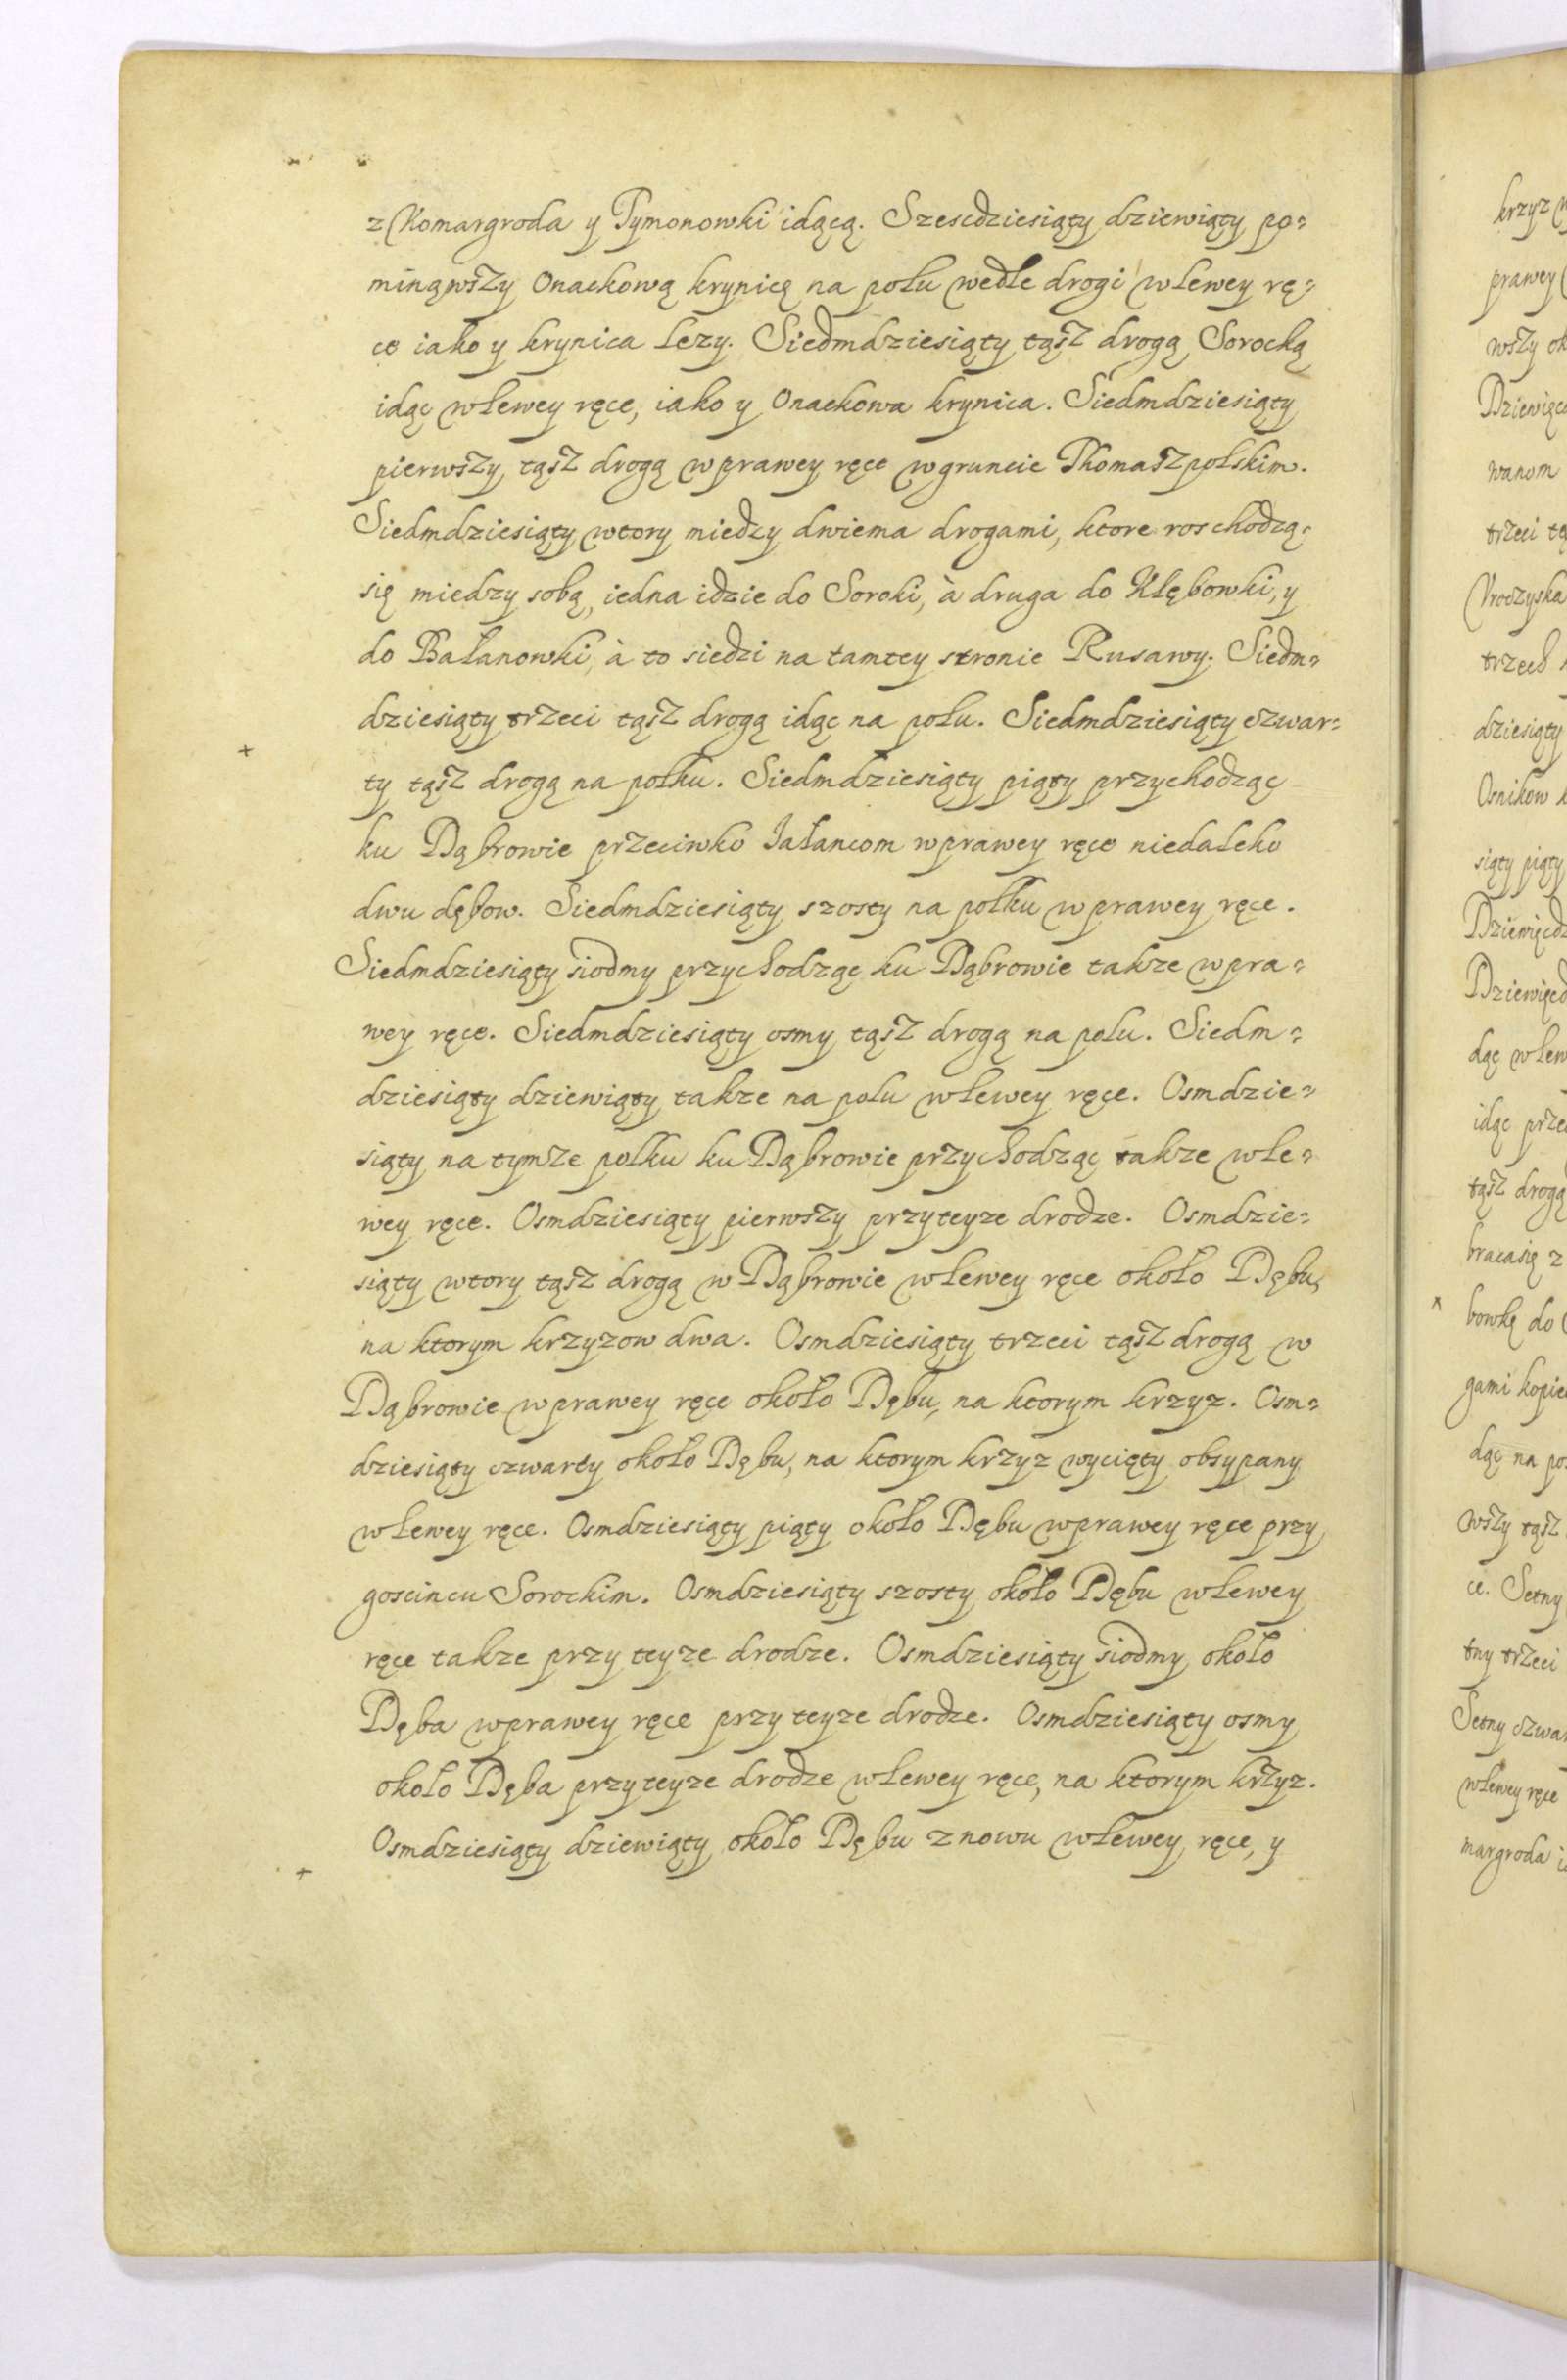 z Komargroda y Tymonowki idącą. Szescdziesiąty dziewiąty po=
minąwszy Onackową krynicę na polu wedle drogi w lewey rę=
ce iako y krynica lezy. Siedmdziesiąty tąsz drogą Sorocką
idąc w lewey ręce, iako y Onackowa krynica. Siedmdziesiąty
pierwszy, tąsz drogą w prawey ręce w gruncie Thomaszpolskim.
Siedmdziesiąty wtory miedzy dwiema drogami, ktore roschodzą
się miedzy sobą, iedna idzie do Soroki, à druga do Kłębowki, y
do Bałanowki, à to siedzi na tamtey stronie Rusawy. Siedm=
dziesiąty trzeci tąsz drogą idąc na polu. Siedmdziesiąty czwar=
ty tąsz drogą na polku. Siedmdziesiąty piąty przychodząc
ku Dąbrowie przeciwko Jalancom w prawey ręce niedaleko
dwu dębow. Siedmdziesiąty szosty na polku w prawey ręce.
Siedmdziesiąty siodmy przychodząc ku Dąbrowie takze w pra=
wey ręce. Siedmdziesiąty osmy tąsz drogą na polu. Siedm=
dziesiąty dziewiąty takze na polu w lewey ręce. Osmdzie=
siąty na tymze polku ku Dąbrowie przychodząc takze w le=
wey ręce. Osmdziesiąty pierwszy przy teyze drodze. Osmdzie=
siąty wtory tąsz drogą w Dąbrowie w lewey ręce około Dębu,
na ktorym krzyzow dwa. Osmdziesiąty trzeci tąsz drogą w
Dąbrowie w prawey ręce około Dębu, na ktorym krzyz. Osm=
dziesiąty czwarty około Dębu, na ktorym krzyz wycięty obsypany
w lewey ręce. Osmdziesiąty piąty około Dębu w prawey ręce przy
goscincu Sorockim. Osmdziesiąty szosty około Dębu w lewey
ręce takze przy teyze drodze. Osmdziesiąty siodmy około
Dęba w prawey ręce przy teyze drodze. Osmdziesiąty osmy
około Dęba przy teyze drodze w lewey ręce, na ktorym krzyz.
Osmdziesiąty dziewiąty około Dębu znowu w lewey ręce, y
krzyz
prawey
wszy
Dziewięc
wanom
trzeci
trzech
dziesiąty
siąty piąty
Dziewięcdz
Dziewięcd
dąc w lew
idąc prze
tąsz drogą
braca się z
bowkę do
gami kopie
dąc na po
wszy tąsz
ce. Setny
tny trzeci
Setny czwar
w lewey ręce
margroda